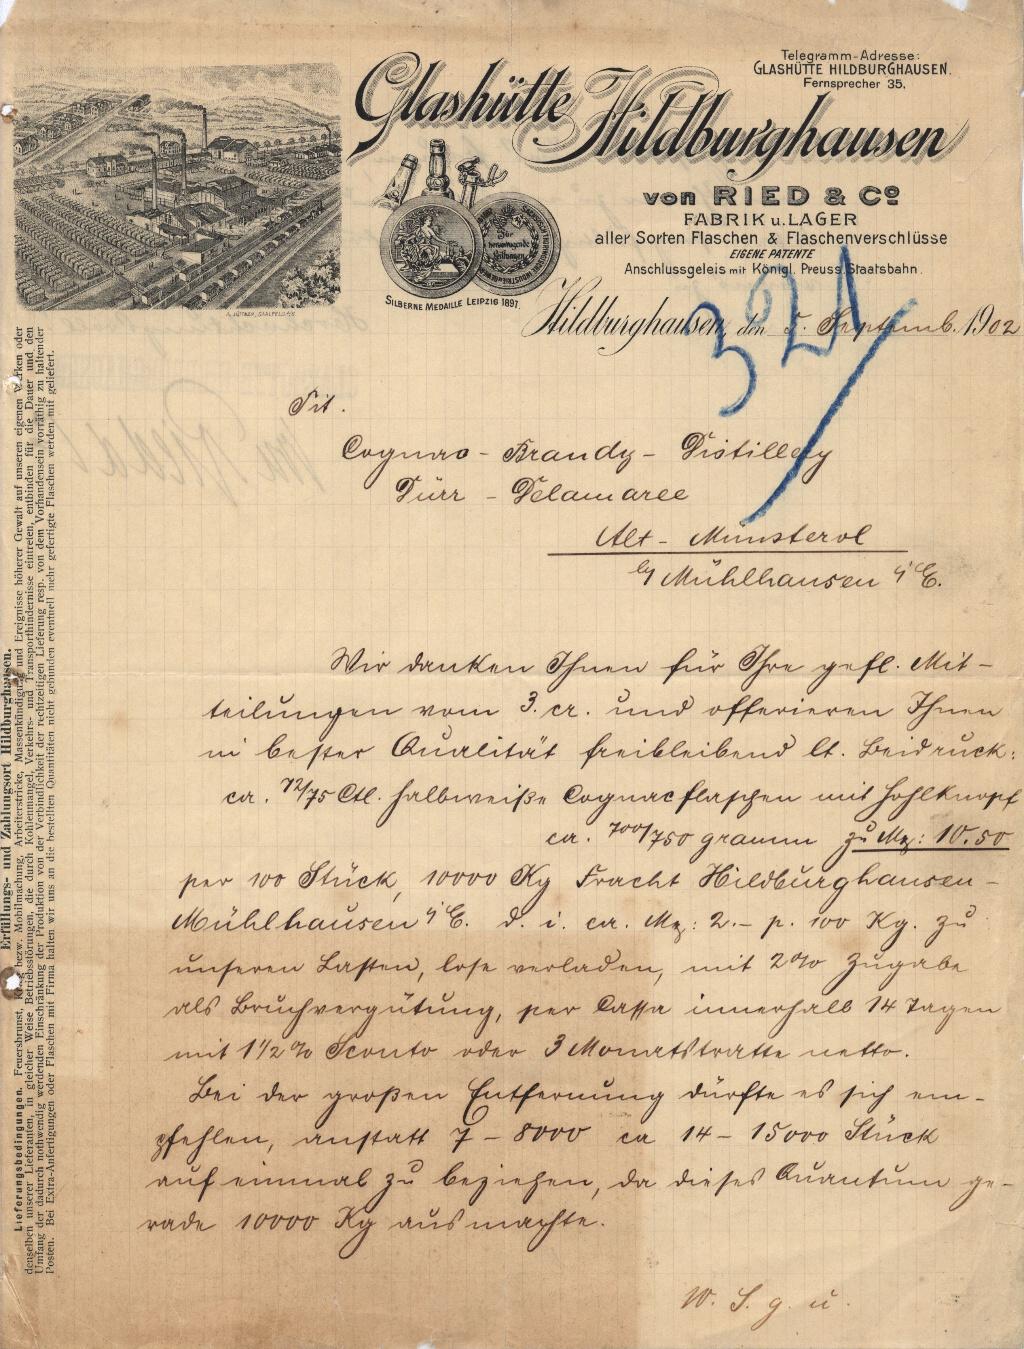 Telegramm-Adresse:
GLASHÜTTE HILDBURGHAUSEN.
Fernsprecher 35.
Glashütte
Hildburghausen
von RIED & Co
FABRIK u. LAGER
aller Sorten Flaschen & Flaschenverschlüsse
EIGENE PATENTE
Anschlussgeleis mit Königl. Preuss. Staatsbahn.
Für hervorragende Leistungen
SILBERNE MEDAILLE LEIPZIG 1897.
Hildburghausen, den 5. Septemb. 1902
321
Tit.
Cognac-Brandy-Distillery
Dürr-Delamaree
Alt-Münsterol
b/ Mühlhausen i/E.
Wir danken Ihnen für Ihre gefl. Mit-
teilungen vom 3. cr. und offerieren Ihnen
in bester Qualität freibleibend lt. Beidruck:
ca. 72/75 Ctl. halbweiße Cognacflaschen mit Hohlknopf
ca. 700/750 gramm zu Mk: 10.50
per 100 Stück, 10000 Kg Fracht Hildburghausen-
Mühlhausen i/E. d. i. ca. Mk: 2.- p. 100 Kg. zu
unseren Lasten, lose verladen, mit 2% Zugabe
als Bruchvergütung, per Cassa innerhalb 14 Tagen
mit 1 1/2 % Sconto oder 3 Monatstratte netto.
Bei der großen Entfernung dürfte es sich em-
pfehlen, anstatt 7-8000 ca 14-15000 Stück
auf einmal zu beziehen, da dieses Quantum ge-
rade 10000 Kg ausmachte.
W. S. g. u.
Erfüllungs- und Zahlungsort Hildburghausen.
Lieferungsbedingungen. Feuersbrunst, Krieg bezw. Mobilmachung, Arbeiterstricke, Massenkündigung und Ereignisse höherer Gewalt auf unseren eigenen Werken oder
denselben unserer Lieferanten, in gleicher Weise Betriebsstörungen, die durch Kohlenmangel, Verkehrs- und Transporthindernisse eintreten, entbinden für die Dauer und den
Umfang der dadurch notwendig werdenden Einschränkung der Produktion von der Verbindlichkeit der rechtzeitigen Lieferung resp. von dem Vorhandensein vorräthig zu haltender
Posten. Bei Extra-Anfertigungen oder Flaschen mit Firma halten wir uns an die bestellten Quantitäten nicht gebunden eventuell mehr gefertigte Flaschen werden mit geliefert.